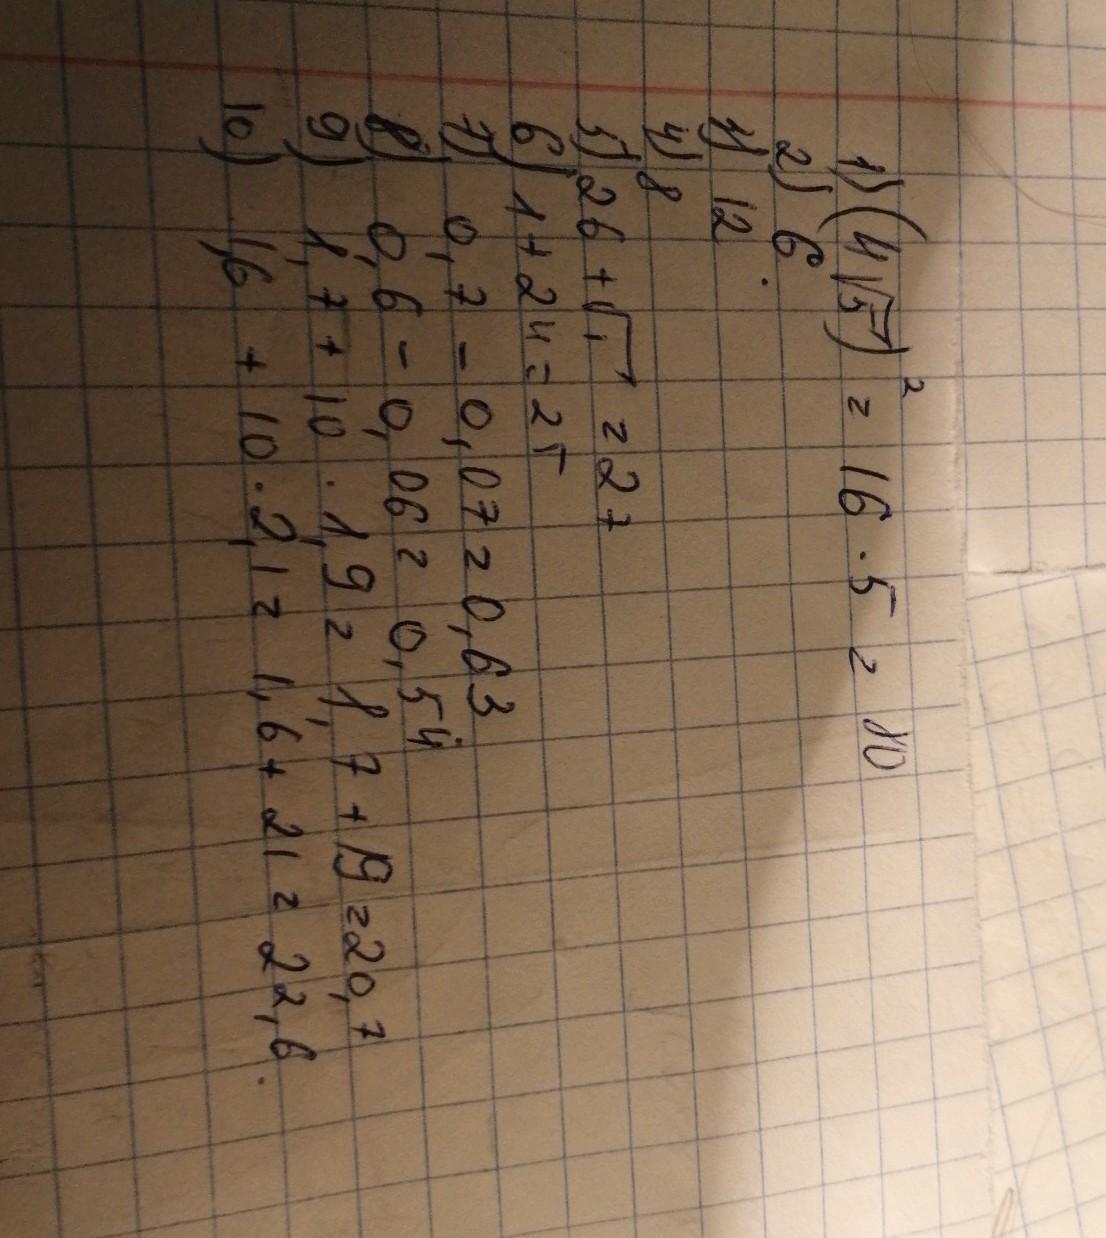 1) (4√5)² = 16 · 5 = 80
2) 6.
3) 12
4) 8
5) 26 + √1 = 27
6) 1 + 24 = 25
7) 0,7 - 0,07 = 0,63
8) 0,6 - 0,06 = 0,54
9) 1,7 + 10 · 1,9 = 1,7 + 19 = 20,7
10) 1,6 + 10 · 2,1 = 1,6 + 21 = 22,6.